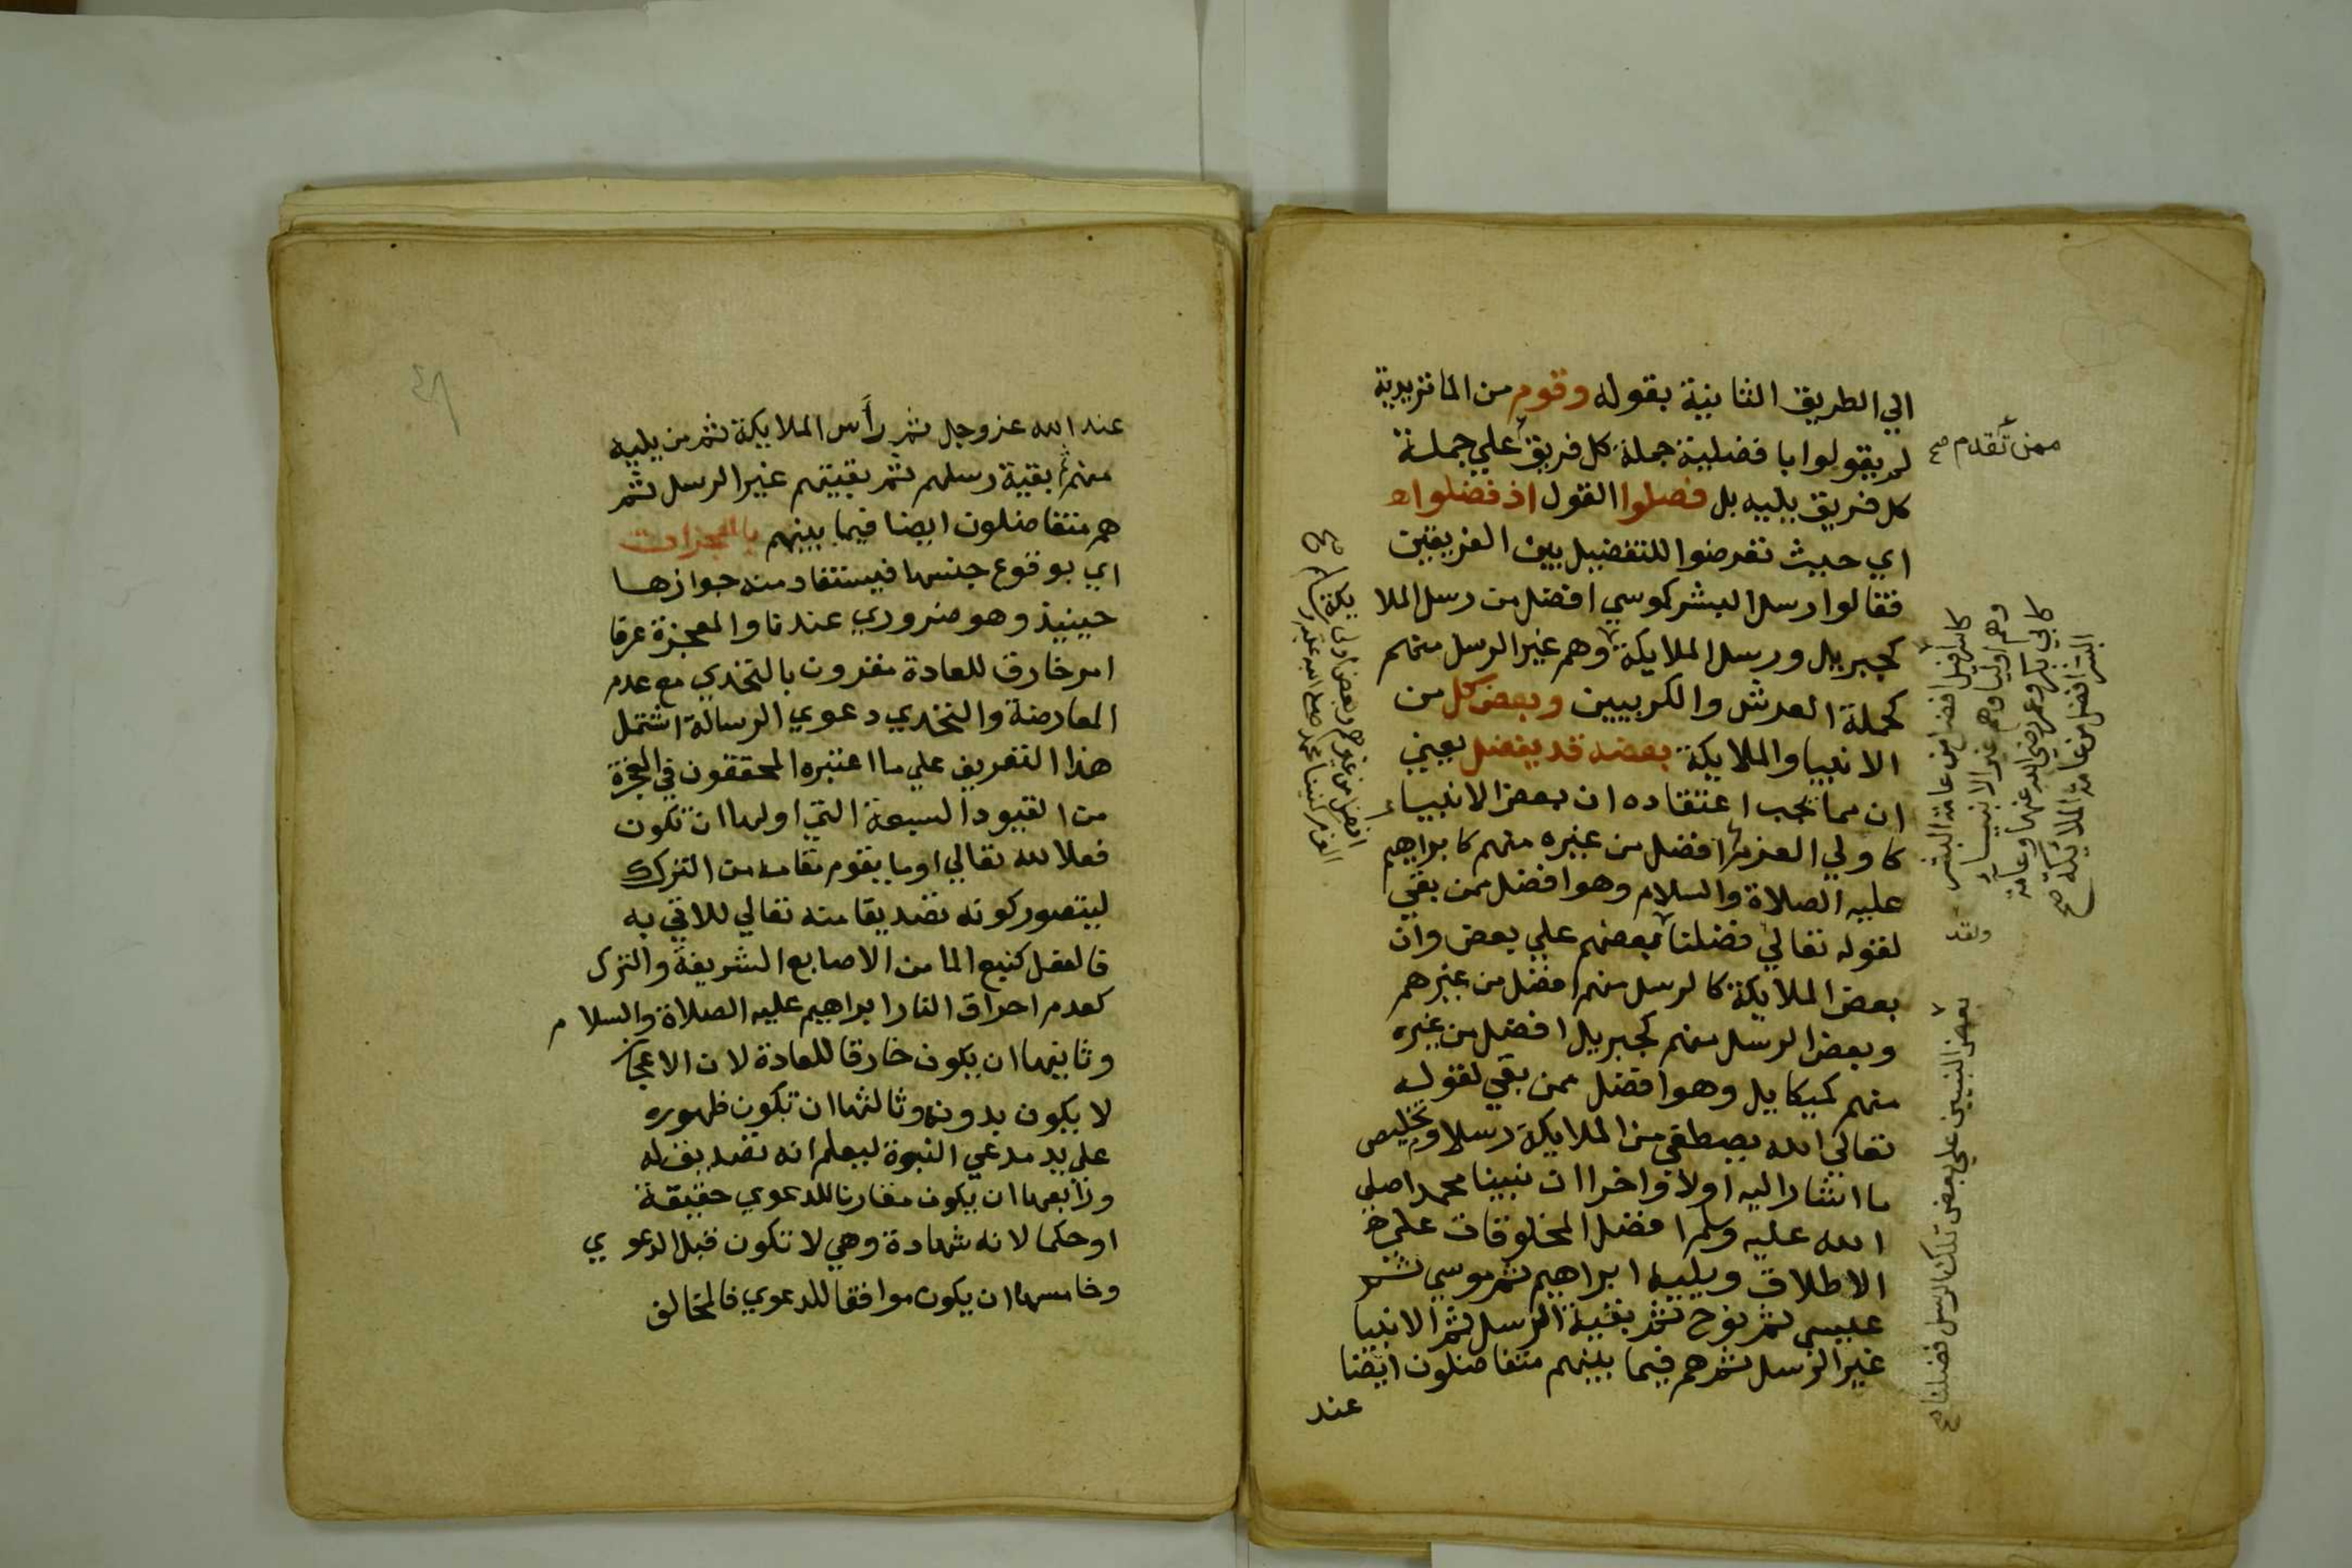 الي الطريق الثانية بقوله وقوم من الماتزيدية
لم يقولوا بافضلية جملة كل فريق علي جملة
كل فريق يليه بل فصلوا القول اذ فضلوا اه
اي حيث تعرضوا للتفضيل بين الفريقين
فقالوا رسل البشر كموسي افضل من رسل الملا
كجبريل ورسل الملايكة وهم غير الرسل منهم
كحملة العرش والكروبيين وبعض كل من
الانبيا والملايكة بعضه قد يفضل يعني
ان مما يجب اعتقاده ان بعض الانبياء
كاولي العزم افضل من غيره منهم كابراهيم
عليه الصلاة والسلام وهو افضل ممن بقي
لقوله تعالي فضلنا بعضهم علي بعض وان
بعض الملايكة كالرسل منهم افضل من غيرهم
وبعض الرسل منهم كجبريل افضل من غيره
منهم كميكاييل وهو افضل ممن بقي لقوله
تعالي الله يصطفي من الملايكة رسلا وتخليص
ما اشار اليه اولا واخرا ان نبينا محمدا صلي
الله عليه وسلم افضل المخلوقات علي
الاطلاق ويليه ابراهيم ثم موسي ثم
عيسي ثم نوح ثم بقية الرسل ثم الانبيا
غير الرسل ثم هم فيما بينهم متفاضلون ايضا
عند
ممن تقدم صح
كاسرافيل افضل من عامة البشر
وهم اوليا وهم غير الانبياء
كابي بكر وعمر رضي الله عنهما وعامة
البشر افضل من عامة الملائكة صح
ولقد
بعض النبيين علي بعض تلك الرسل فضلنا صح
عند الله عز وجل ثم رأس الملايكة ثم من يليه
منهم ثم بقية رسلهم ثم بقيتهم غير الرسل ثم
هم متفاضلون ايضا فيما بينهم بالمعجزات
اي بوقوع جنسها فيستفاد منه جوازها
حينيذ وهو ضروري عندنا والمعجزة عرفا
امر خارق للعادة مقرون بالتحدي مع عدم
المعارضة والتحدي دعوي الرسالة اشتمل
هذا التعريف علي ما اعتبره المحققون في المعجزة
من القيود السبعة التي اولها ان تكون
فعلا لله تعالي او ما يقوم مقامه من الترك
ليتصور كونه تصديقا منه تعالي للاتي به
فالفعل كنبع الما من الاصابع الشريفة والترك
كعدم احراق النار ابراهيم عليه الصلاة والسلام
وثانيها ان يكون خارقا للعادة لان الاعجاز
لا يكون بدونه وثالثها ان تكون ظهوره
علي يد مدعي النبوة ليعلم انه تصديق له
ورابعها ان يكون مقارنا للدعوي حقيقة
او حكما لانه شهادة وهي لا تكون قبل الدعوي
وخامسها ان يكون موافقا للدعوي فالمخالف